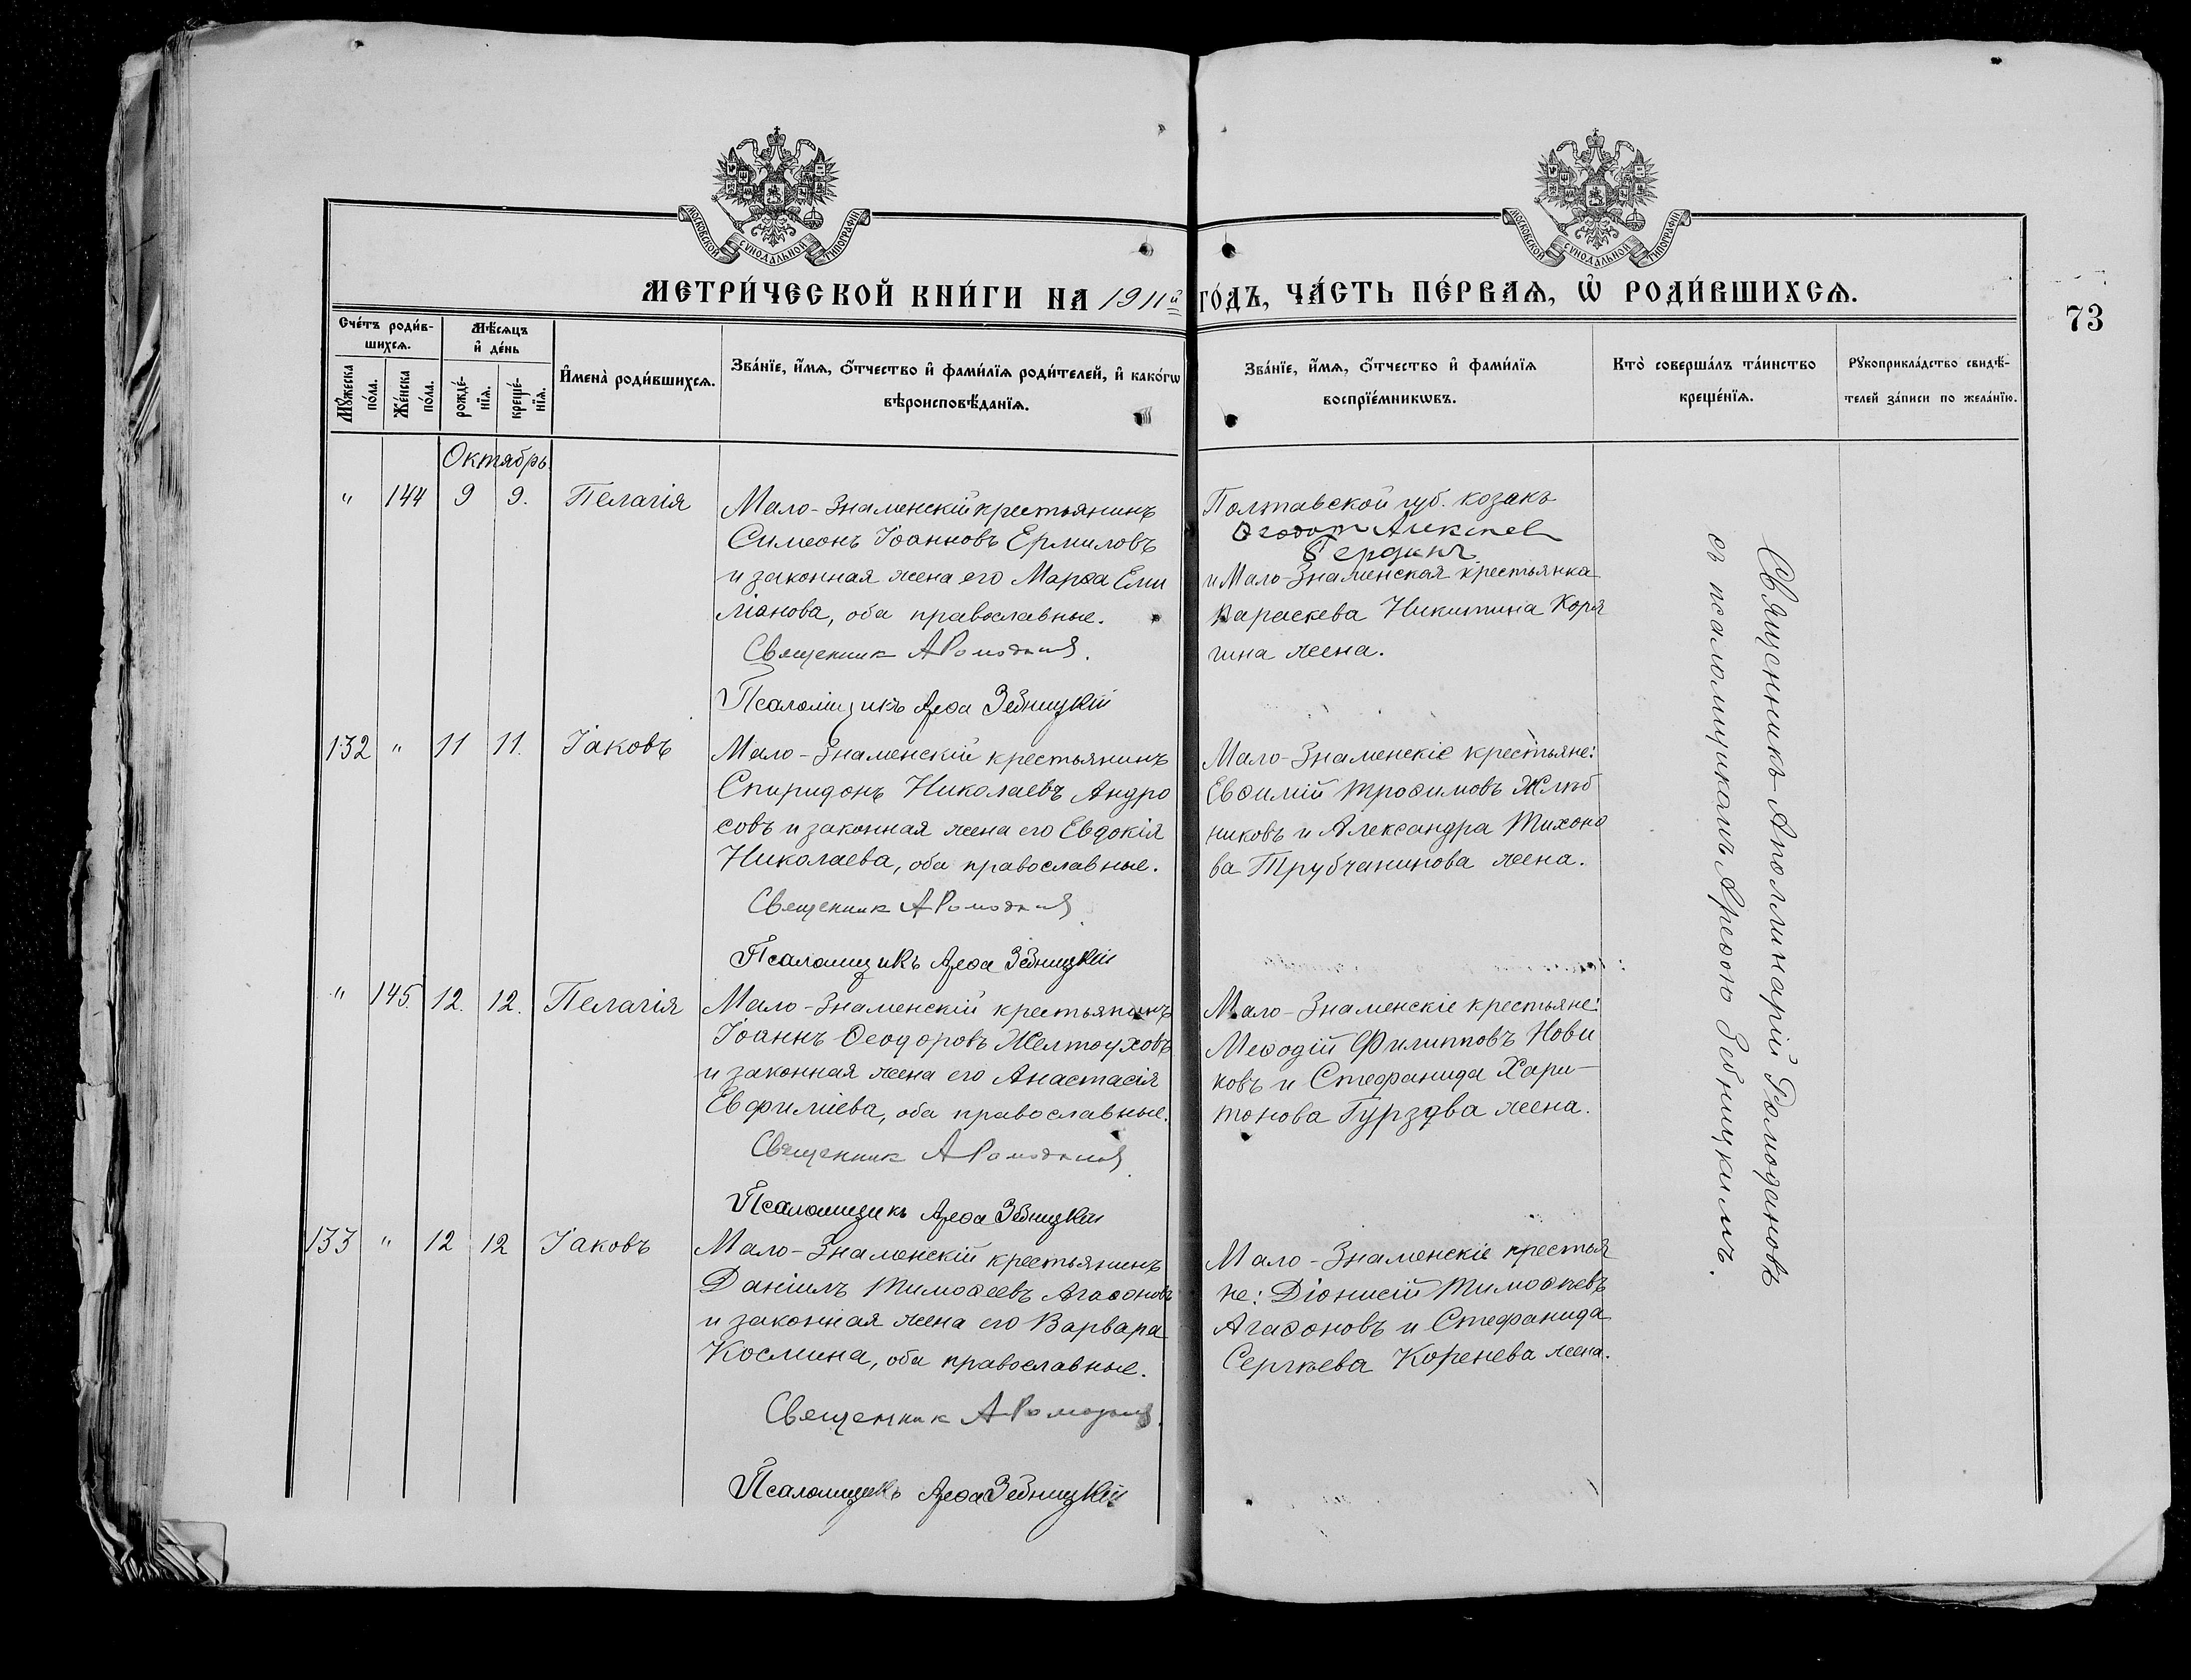 МОСКОВСКОЙ СѴНОДАЛЬНОЙ ТИПОГРАФІИ
МОСКОВСКОЙ СѴНОДАЛЬНОЙ ТИПОГРАФІИ
МЕТРИ́ЧЕСКОЙ КНИ́ГИ НА 1911й ГО́ДЪ, ЧА́СТЬ ПЕ́РВАѦ, Ѿ РОДИ́ВШИХСѦ.
73
Сче́тъ роди́в-
шихсѧ.
Мꙋ́жеска по́ла.
Же́нска по́ла.
Мѣ́сѧцъ
и҆ де́нь
рожде́-нїѧ.
креще́-нїѧ.
И҆мена̀ роди́вшихсѧ.
Зва́нїе, и҆́мѧ, ѻ҆́тчество и҆ фами́лїѧ роди́телей, и҆ како́гѡ
вѣроисповѣ́данїѧ.
Зва́нїе, и҆́мѧ, ѻ҆́тчество и҆ фами́лїѧ
воспрїе́мникѡвъ.
Кто̀ соверша́лъ та́инство
креще́нїѧ.
Рꙋкоприкла́дство свидѣ́-
телей за́писи по жела́нїю.
Октябрь
" 144 9 9. Пелагія
Мало-Знаменскій крестьянинъ
Симеонъ Іоанновъ Ермиловъ
и законная жена его Марѳа Еми
ліанова, оба православные.
Священник А Ромоданов.
Псаломщикъ Арефа Зебницкій
Полтавской губ. козакъ
Ѳеодот Алексеев
и Мало-Знаменская крестьянка
Параскева Никитина Коря
гина жена.
132 " 11 11. Іаковъ
Мало-Знаменскій крестьянинъ
Спиридонъ Николаевъ Андро
совъ и законная жена его Евдокія
Николаева, оба православные.
Священник А Ромоданов
Псаломщикъ Арефа Зебницкій
Мало-Знаменскіе крестьяне:
Евѳимій Троѳимовъ Жлоб
никовъ и Александра Тихоно
ва Трубчанинова жена.
" 145 12. 12. Пелагія
Мало-Знаменскій крестьянинъ
Іоаннъ Ѳеодоровъ Желтоуховъ
и законная жена его Анастасія
Евфиміева, оба православные.
Священник А Ромоданов
Псаломщикъ Арефа Зебницкій
Мало-Знаменскіе крестьяне:
Меѳодій Филипповъ Нови
ковъ и Стефанида Хари-
тонова Гурзова жена.
133 " 12 12 Іаковъ
Мало-Знаменскій крестьянинъ
Даніилъ Тимоѳеевъ Агаѳоновъ
и законная жена его Варвара
Космина, оба православные.
Священник А Ромоданов.
Псаломщикъ Арефа Зебницкій
Мало-Знаменскіе крестья
не: Діонисій Тимоѳеевъ
Агаѳоновъ и Стефанида
Сергѣева Коренева жена.
Священникъ Аполлинарій Ромодановъ
съ псаломщикомъ Арефою Зебницкимъ.